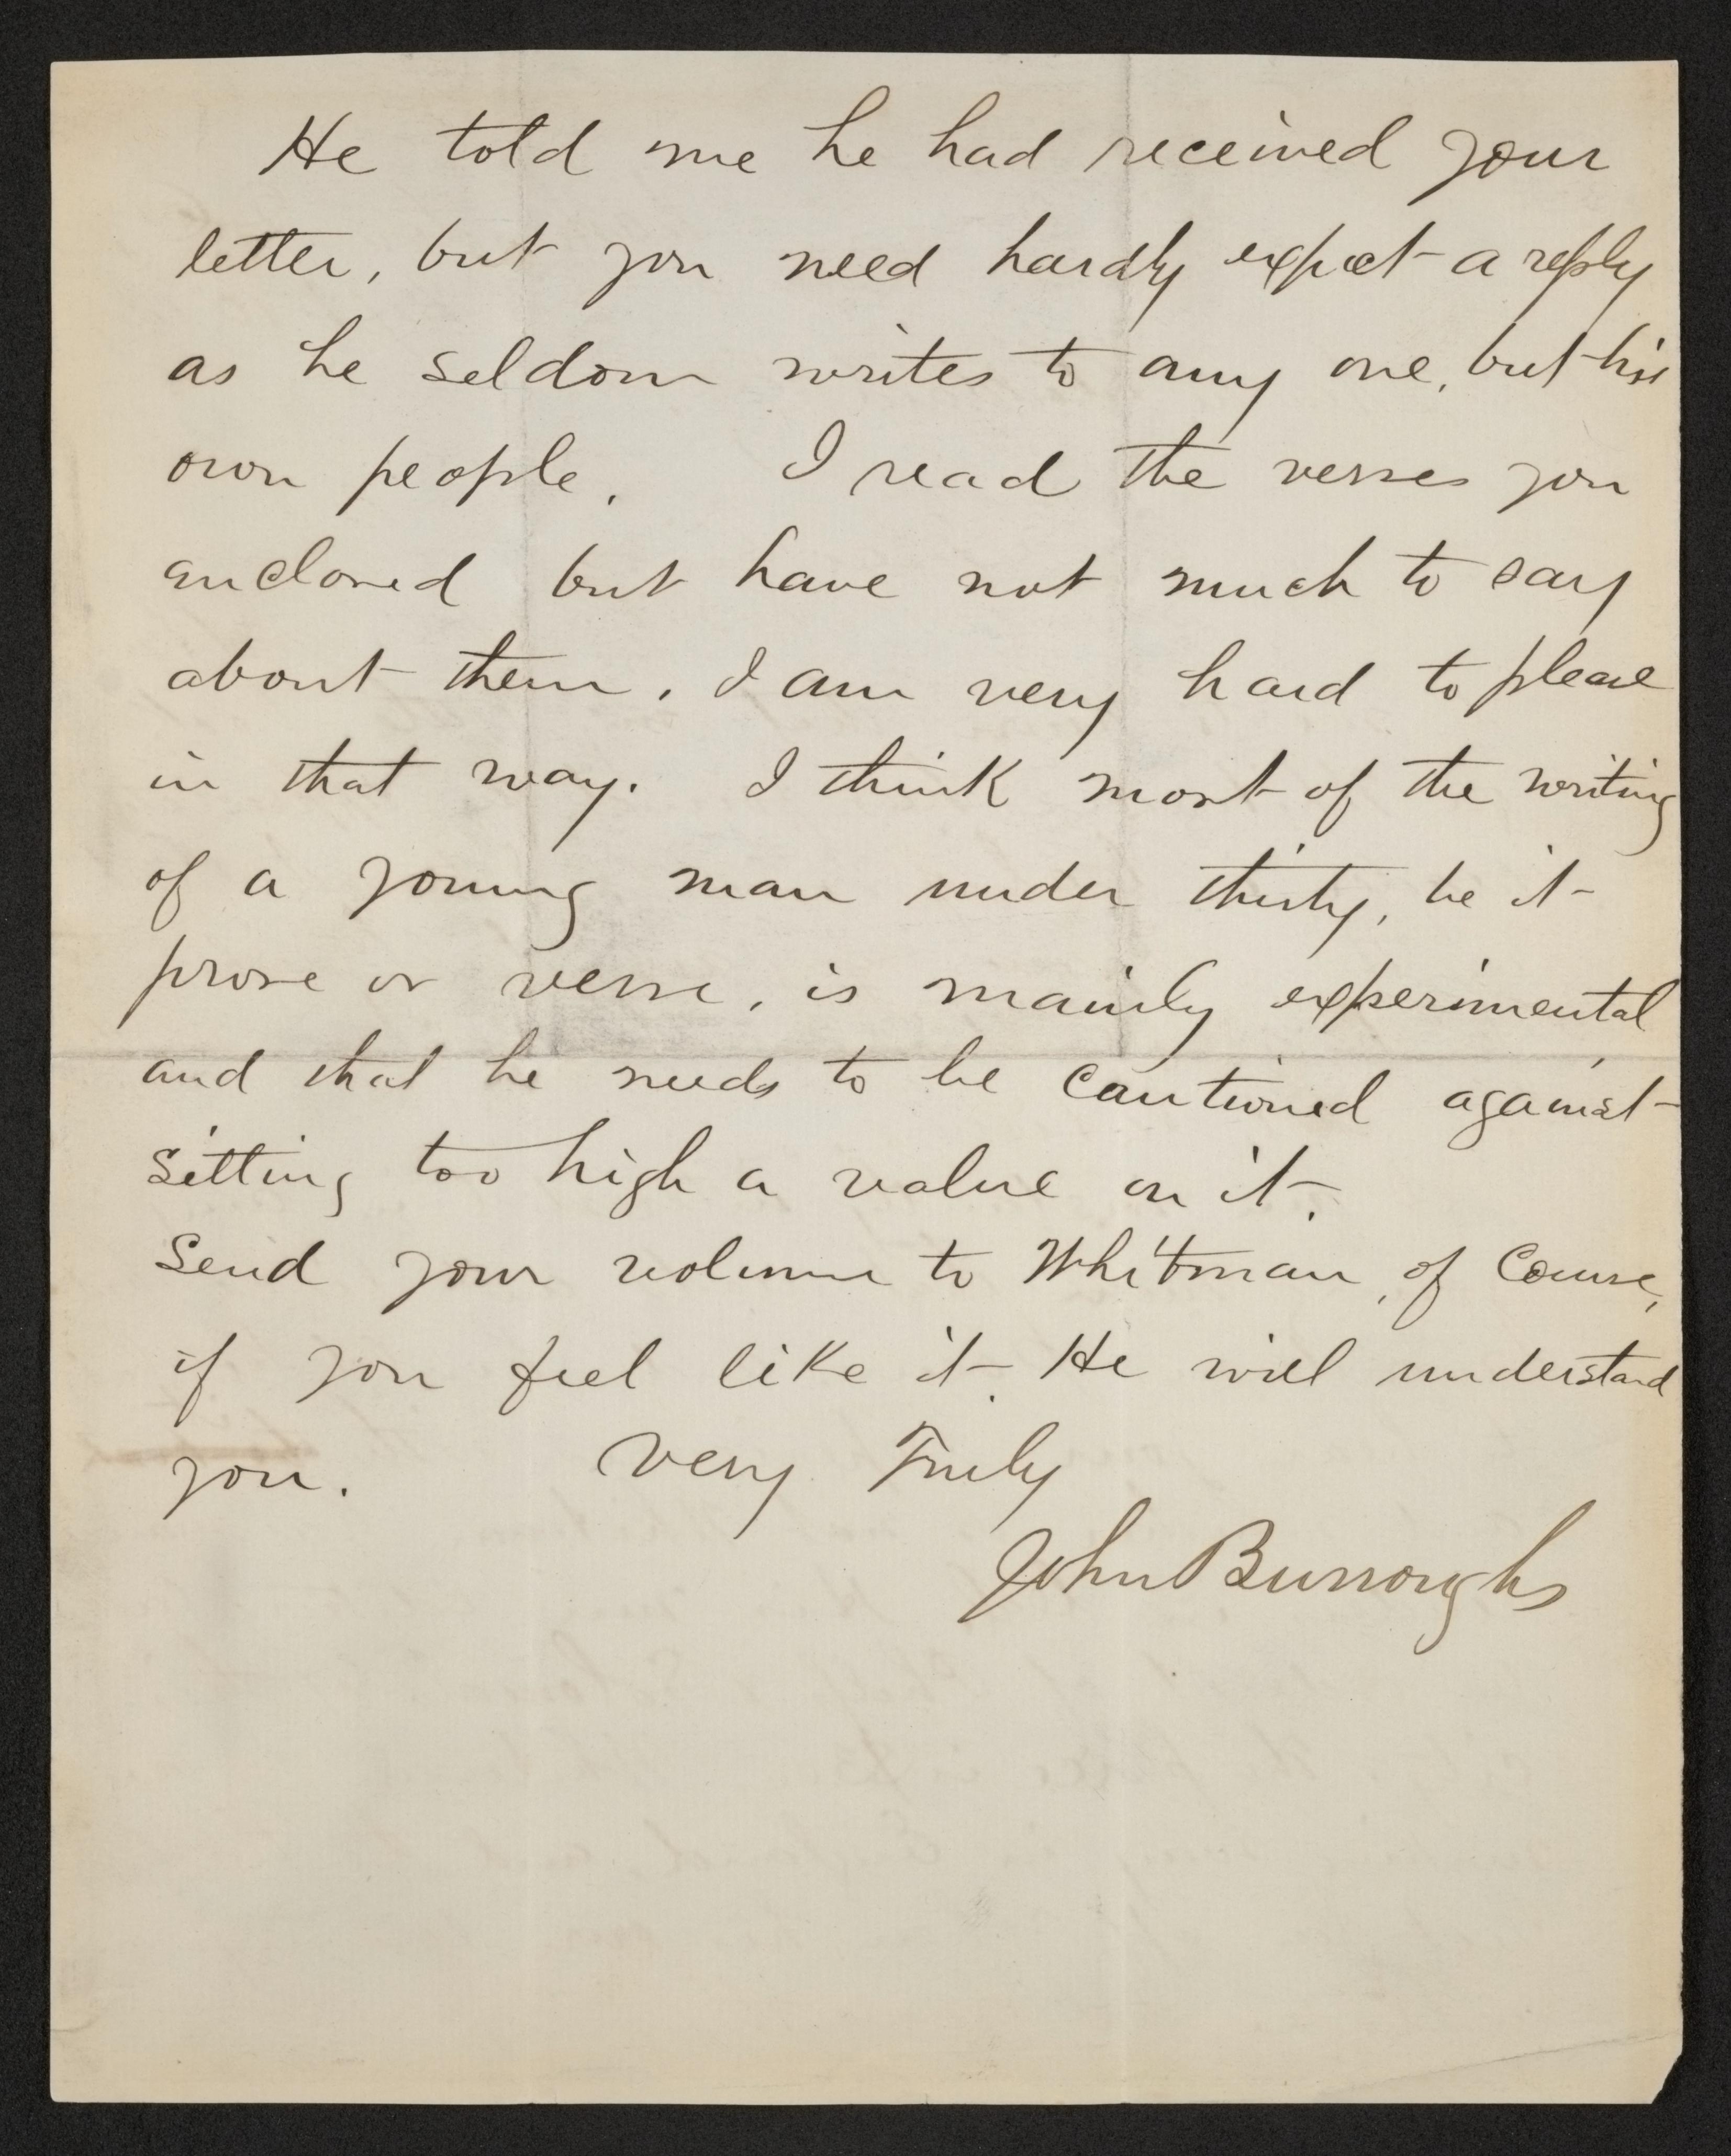 He told me he had received your
letter, but you need hardly expect a reply
as he seldom writes to any one, but his
own people. I read the verses you
enclosed but have not much to say
about them. I am very hard to please
in that way. I think most of the writing
of a young man under thirty, be it
prose or verse, is mainly experimental
and that he needs to be cautioned against
setting too high a value on it.
Send your volume to Whitman, of Course,
if you feel like it. He will understand
you. Very Truly
John Burroughs